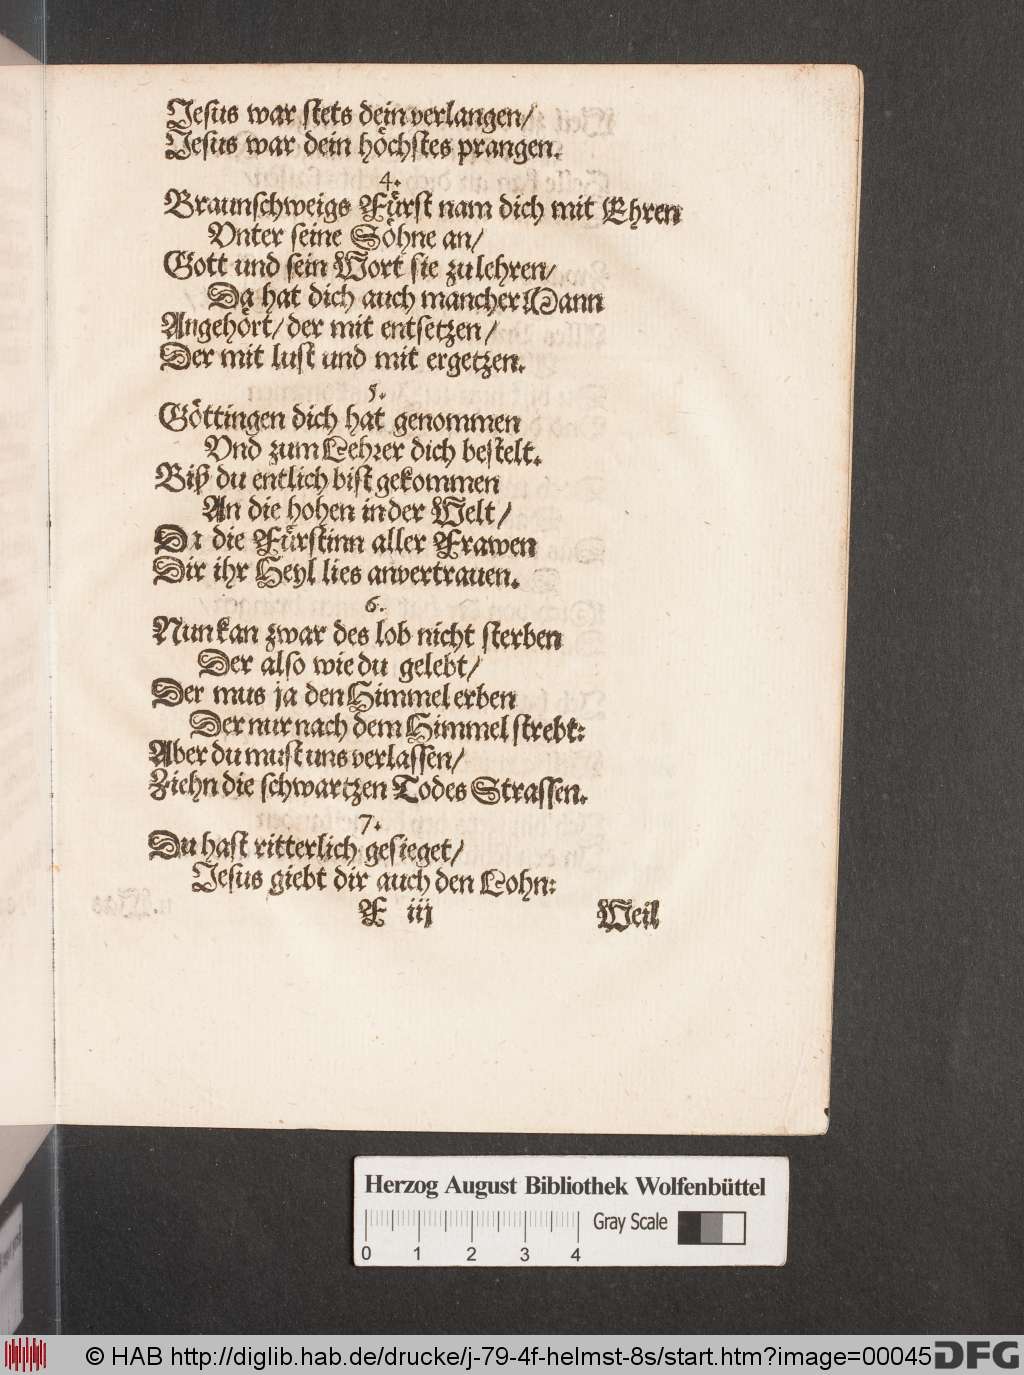 Jesus war stets dein verlangen/
Jesus war dein höchstes prangen.
4.
Braunschweigs Fürst nam dich mit Ehren
Vnter seine Söhne an/
Gott und sein Wort sie zu lehren/
Da hat dich auch mancher Mann
Angehört/ der mit entsetzen/
Der mit lust und mit ergetzen.
5.
Göttingen dich hat genommen
Vnd zum Lehrer dich bestelt.
Biß du entlich bist gekommen
An die hohen in der Welt/
Da die Fürstinn aller Frawen
Dir ihr Heyl lies anvertrauen.
6.
Nun kan zwar des lob nicht sterben
Der also wie du gelebt/
Der mus ja den Himmel erben
Der nur nach dem Himmel strebt:
Aber du must uns verlassen/
Ziehn die schwartzen Todes Strassen.
7.
Du hast ritterlich gesieget/
Jesus giebt dir auch den Lohn:
F iij Weil
Herzog August Bibliothek Wolfenbüttel
Gray Scale
0 1 2 3 4
© HAB http://diglib.hab.de/drucke/j-79-4f-helmst-8s/start.htm?image=00045 DFG